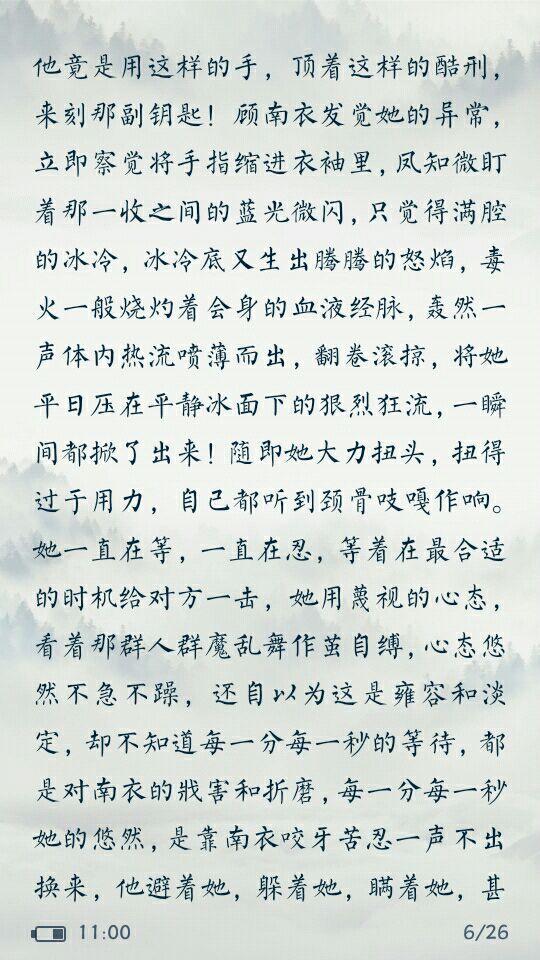 他竟是用这样的手，顶着这样的酷刑，
来刻那副钥匙！顾南衣发觉她的异常，
立即察觉将手指缩进衣袖里，凤知微盯
着那一收之间的蓝光微闪，只觉得满腔
的冰冷，冰冷底又生出腾腾的怒焰，毒
火一般烧灼着会身的血液经脉，轰然一
声体内热流喷薄而出，翻卷滚掠，将她
平日压在平静冰面下的狠烈狂流，一瞬
间都掀了出来！随即她大力扭头，扭得
过于用力，自己都听到颈骨吱嘎作响。
她一直在等，一直在忍，等着在最合适
的时机给对方一击，她用蔑视的心态，
看着那群人群魔乱舞作茧自缚，心态悠
然不急不躁，还自以为这是雍容和淡
定，却不知道每一分每一秒的等待，都
是对南衣的戕害和折磨，每一分每一秒
她的悠然，是靠南衣咬牙苦忍一声不出
换来，他避着她，躲着她，瞒着她，甚
11:00
6/26